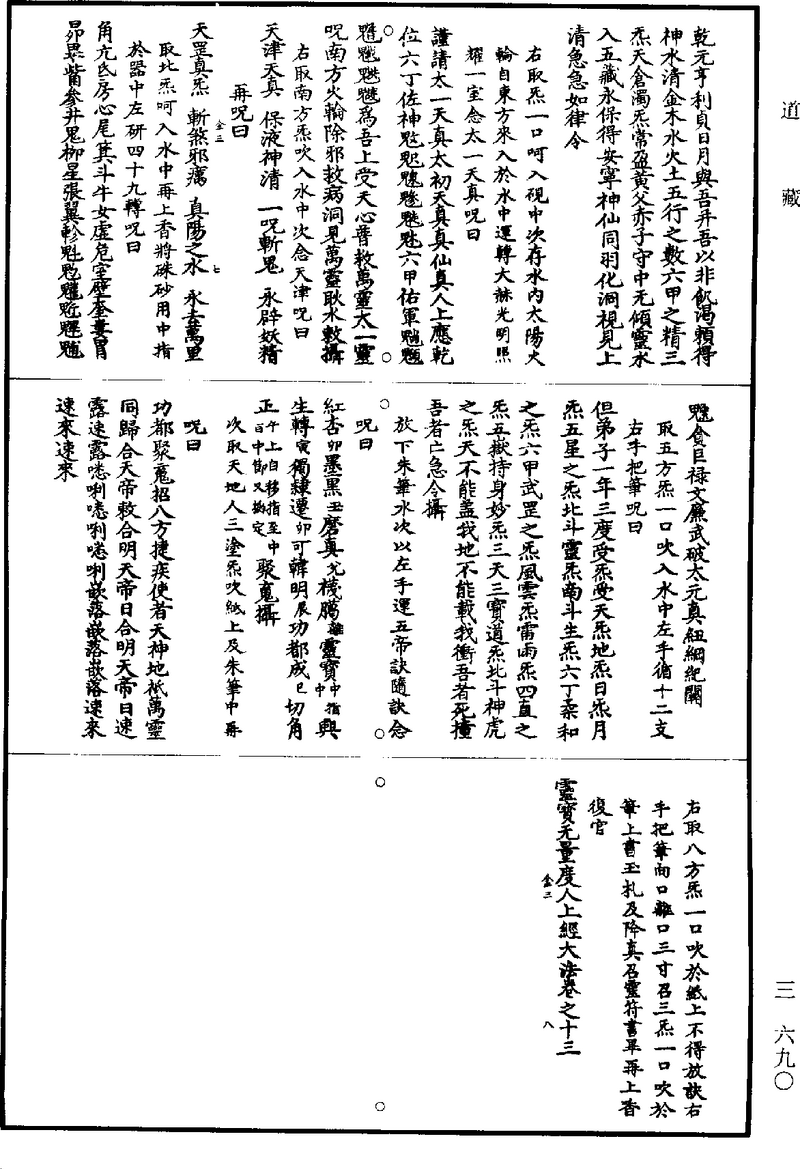 道藏
三 六九〇
乾元亨利貞日月與吾并吾以非飲渴賴得
神水清金木水火土五行之數六甲之精三
炁天倉濁炁常盈黃父赤子守中无傾靈水
入五藏永保得安寧神仙同羽化洞視見上
清急急如律令
右取炁一口呵入硯中次存水內太陽火
輪自東方來入於水中運轉大赫光明照
耀一室念太一天真呪曰
謹請太一天真太初天真真仙真人上應乾
位六丁佐神六甲佑軍
為吾上受天心普救萬靈太一靈
呪南方火輪除邪救病洞見萬靈耿水敕攝
右取南方炁吹入水中次念天津呪曰
天津天真 保液神清 一呪斬鬼 永辟妖精
再呪曰
金三
天罡真炁 斬煞邪癘 真陽之水 永去萬里
七
取北炁呵入水中再上香將硃砂用中指
於器中左研四十九轉呪曰
角亢氐房心尾箕斗牛女虛危室壁奎婁胃
昴畢觜參井鬼柳星張翼軫
貪巨祿文廉武破太元真紐綱紀關
取五方炁一口吹入水中左手循十二支
右手把筆呪曰
但弟子一年三度受炁受天炁地炁日炁月
炁五星之炁北斗靈炁南斗生炁六丁柔和
之炁六甲武罡之炁風雲炁雷雨炁四直之
炁五嶽持身妙炁三天三寶道炁北斗神虎
之炁天不能蓋我地不能載我衝吾者死撞
吾者亡急令攝
放下朱筆水次以左手運五帝訣隨訣念
呪曰
紅杏卯墨黑丑磨真戈機騰離靈寶中指中興
生轉寅獨隸遷卯可韓明辰功都成巳切角
正午上自移指至中百中節又掬定聚魔攝
次取天地人三塗炁吹紙上及朱筆中再
呪曰
功都聚魔招八方捷疾使者天神地祇萬靈
同歸合天帝敕合明天帝日合明天帝日速
露速露嘧唎嘧唎嘧唎嵌落嵌落嵌落速來
速來速來
右取八方炁一口吹於紙上不得放訣右
手把筆向口離口三寸召三炁一口吹於
筆上書玉札及降真召靈符書畢再上香
復官
靈寶无量度人上經大法卷之十三
金三
八